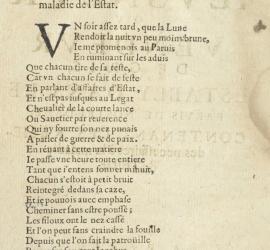 maladie de l'Estat.
VN soir assez tard, que la Lune
Rendoit la nuit vn peu moins brune,
Ie me promenois au Paruis
En ruminant sur les aduis
Que chacun tire de sa teste,
Car vn chacun se fait de feste
En parlant d'affaires d'Estat,
Et n'est pas iusques au Legat
Cheualier de la courte lance
Ou Sauctier par reuerence
Qui ny fourre son nez punais
A parler de guerre & de paix.
En resuant à cette matiere
Ie passe vne heure toute entiere
Tant que i'entens sonner minuit,
Chacun s'estoit à petit bruit
Reintegré dedans sa caze,
Et ie pouuois auec emphase
Cheminer sans estre poussé;
Les filoux ont le nez cassé
Et l'on peut sans craindre la fouille
Depuis que l'on fait la patroüille